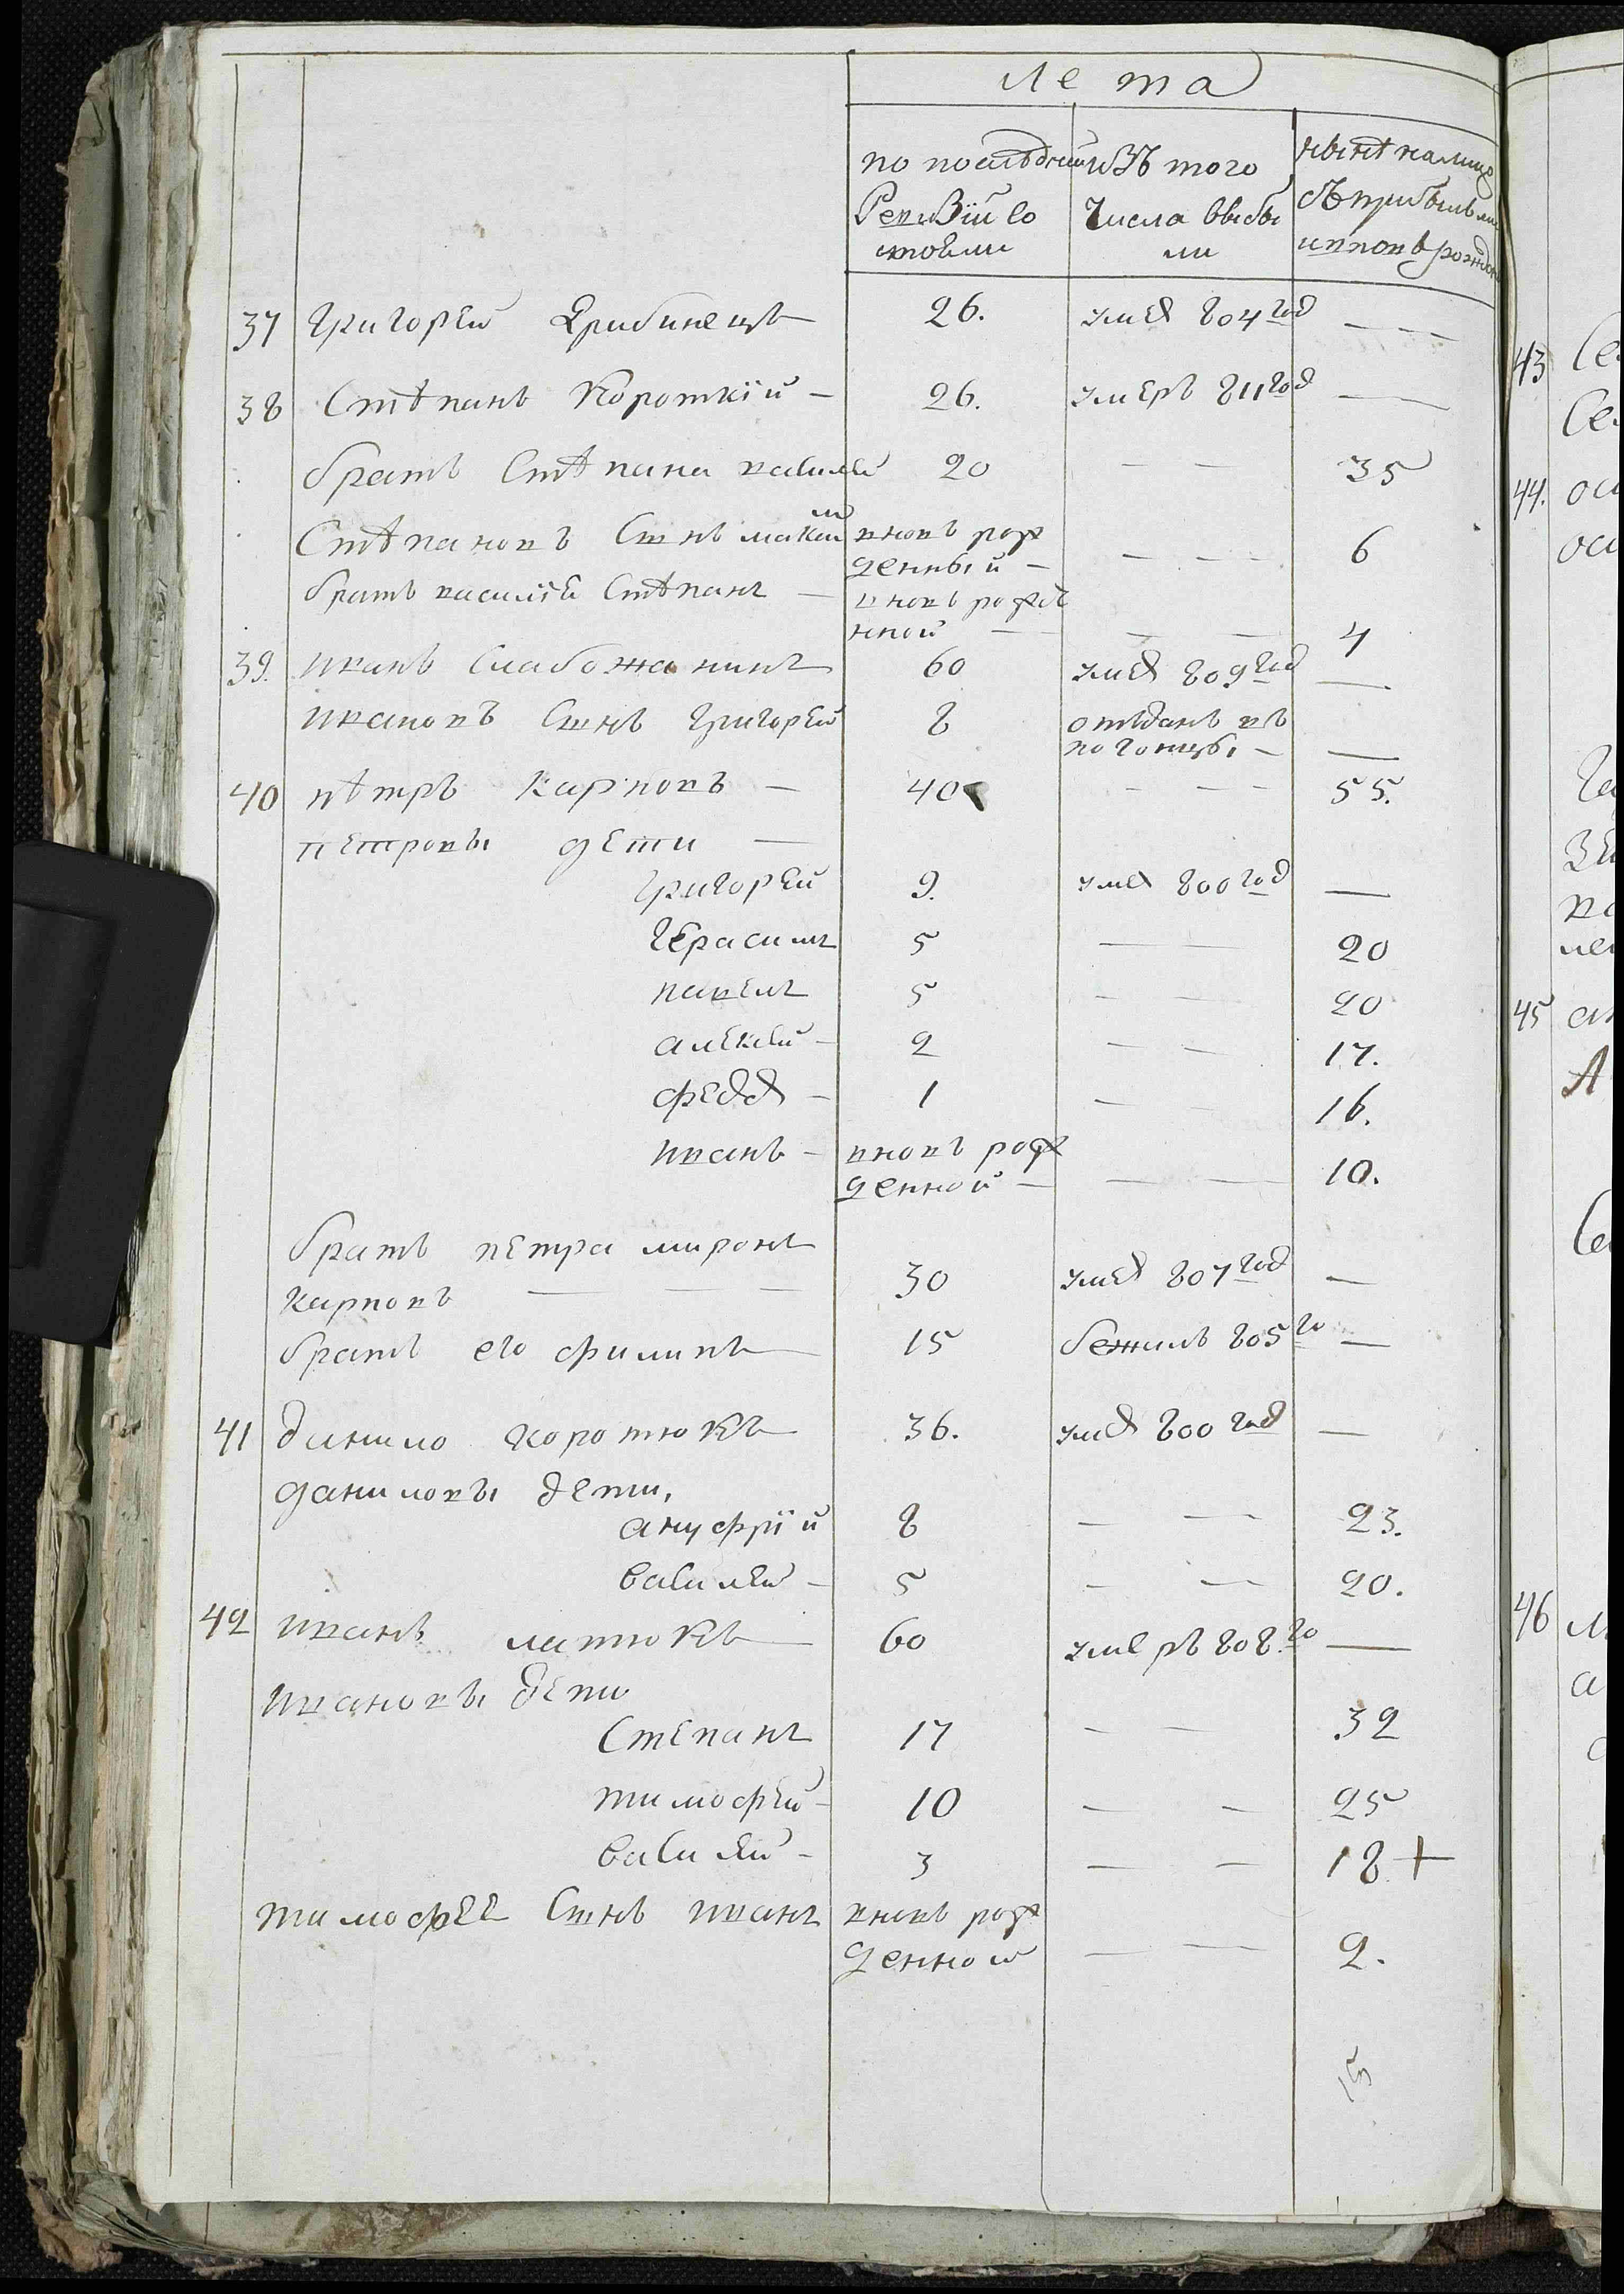 лета
по последней изъ того нынѣ налицо
Ревизіи со числа выбы съ прибылыми
стояли ли и вновь рожден
37 Григорей Грибинецъ 26. умеръ 804 год — — —
38 Стѣпанъ Короткій — 26. умеръ 811 год — —
братъ Стѣпана василей 20 — — 35
Стѣпановъ Сынъ максим вновь рож
денный — — — — 6
братъ василія Стѣпанъ — вновь рожде
нной — — — 4
39. иванъ Слабожанинъ 60 умеръ 809 год —
ивановъ Сынъ Григорей 8 отъданъ въ
погонцы — —
40 пѣтръ карповъ — 40 — — — 55.
петровы дети —
григорей 9. умеръ 800 год —
Герасимъ 5 — — 20
павелъ 5 — — 20
алексей — 2 — — 17.
федоръ — 1 — — 16.
иванъ — вновь рож
денной — — — 10.
братъ петра миронъ
карповъ — — — 30 умеръ 807 год —
братъ его филипъ 15 бежалъ 805 го —
41 данило коротюкъ 36. умеръ 800 год —
даниловы дети,
ануфрій 8 — — 23.
василей — 5 — — 20.
42 иванъ латюкъ 60 умеръ 808. го —
ивановы дети
Степанъ 17 — — 32
тимофей — 10 — — 25
василей — 3 — — 18 +
тимофее Сынъ иванъ вновь рож
денной — — 2.
15
43 Се
Се
44. оси
оси
45
А
46